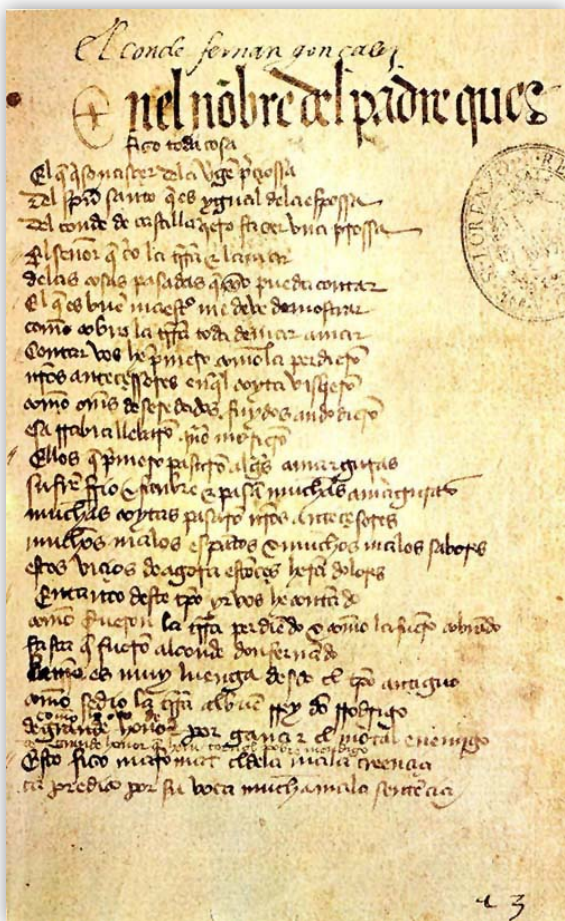 El conde fernan gonçalez
Enel nõbre del padre ques
fizo toda cosa
El q̃ q̃so nasçer dela vg̃e p̃çiossa
Del spũ santo q̃ es ygual dela espossa
Del conde de castilla q̃ero fazer vna prossa
El señor q̃ crio la trr̃a e la mar
delas cosas pasadas q̃ yo pueda contar
El q̃ es buẽ maestro me deve demostrar
como cobro la trr̃a toda de mar a mar
Contar vos he p̃mero como la perdierõ
nr̃os anteçessores en q̃l coyta visq̃erõ
como omẽs deseredados fuydos andodierõ
esa rrabia llevarõ
Ellos q̃ p̃mero pasarõ amarguras
sufrẽ frio e fanbre e pasarõ muchas amarguras
muchas coytas pasarõ nr̃os anteçesores
muchos malos espãtos e muchos malos sabores
estos viçios de agora estõçes herã dolores
Entanto deste tp̃o yr vos he contãdo
como fueron la trr̃a perdiẽdo e como la fuerõ cobrãdo
fasta q̃ fuerõ al conde don fernãdo
Como es muy luenga deseo el tp̃o antiguo
como se dio la trr̃a al buẽ rrey dõ rrodrigo
como
de grande honor por ganar el mortal enemigo
de grande honor pobre mendigo
Esto fizo mafomat el dela mala creençia
ca predico por su boca mucha mala sentẽçia
S. LORENZO
RE
3